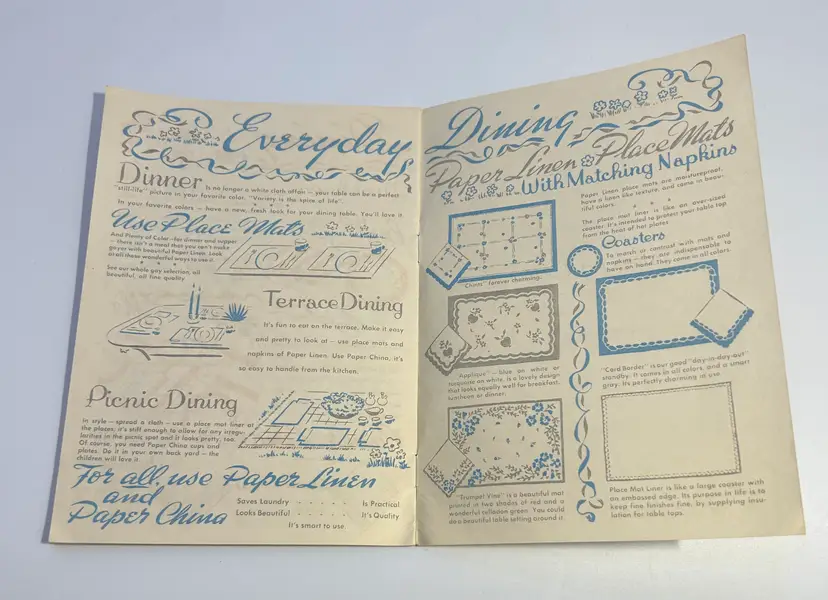 Everyday
Dinner Is no longer a white cloth affair — your table can be a perfect
"still-life" picture in your favorite color. "Variety is the spice of life".
In your favorite colors — have a new, fresh look for your dining table. You'll love it
Use Place Mats
And Plenty of Color — for dinner and supper
— there isn't a meal that you can't make
gayer with beautiful Paper Linen. Look
at all these wonderful ways to use it.
See our whole gay selection, all
beautiful, all fine quality.
Terrace Dining
It's fun to eat on the terrace. Make it easy
and pretty to look at — use place mats and
napkins of Paper Linen. Use Paper China, it's
so easy to handle from the kitchen.
Picnic Dining
In style — spread a cloth — use a place mat liner at
the places, it's stiff enough to allow for any irregu-
larities in the picnic spot and it looks pretty, too.
Of course, you need Paper China cups and
plates. Do it in your own back yard — the
children will love it.
For all, use Paper Linen
and
Paper China
Saves Laundry - - - - - Is Practical
Looks Beautiful - - - - - It's Quality
It's smart to use.
Dining
Paper Linen Place Mats
With Matching Napkins
Paper Linen place mats are moistureproof,
have a linen like texture, and come in beau-
tiful colors.
The place mat liner is like an over-sized
coaster. It's intended to protect your table top
from the heat of hot plates
Coasters
To match or contrast with mats and
napkins — they are indispensable to
have on hand. They come in all colors.
"Chintz" forever charming.
"Applique" — blue on white or
turquoise on white, is a lovely design
that looks equally well for breakfast,
luncheon or dinner.
"Cord Border" is our good "day-in-day-out"
standby. It comes in all colors, and a smart
gray. Its perfectly charming in use.
"Trumpet Vine" is a beautiful mat
printed in two shades of red and a
wonderful celladon green. You could
do a beautiful table setting around it.
Place Mat Liner is like a large coaster with
an embossed edge. Its purpose in life is to
keep fine finishes fine, by supplying insu-
lation for table tops.